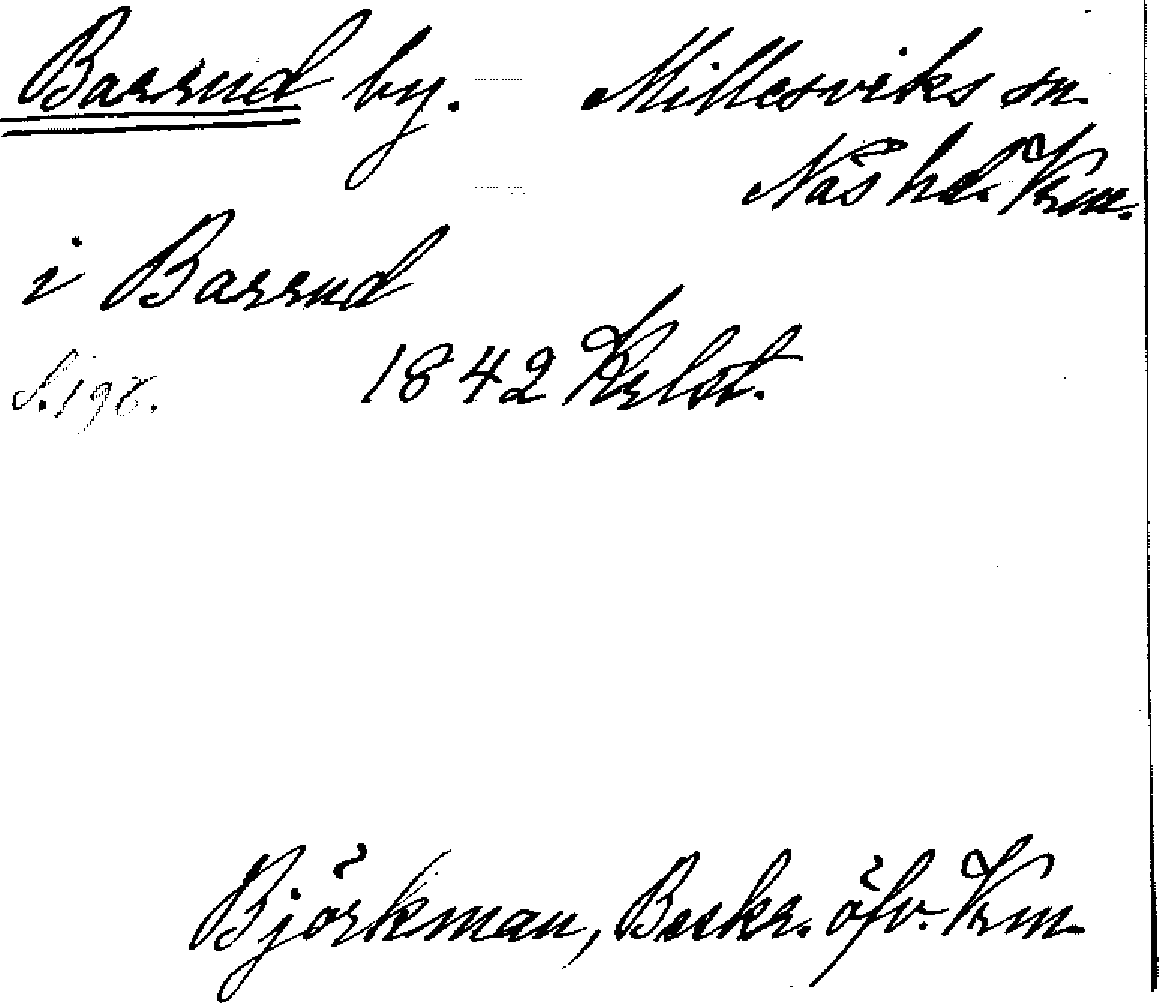 Barrud by. Millesviks sn.
Näs hd. Vrm.
i Barrud
S. 198. 1842
Björkman, Beskr. öfv. Vrm.